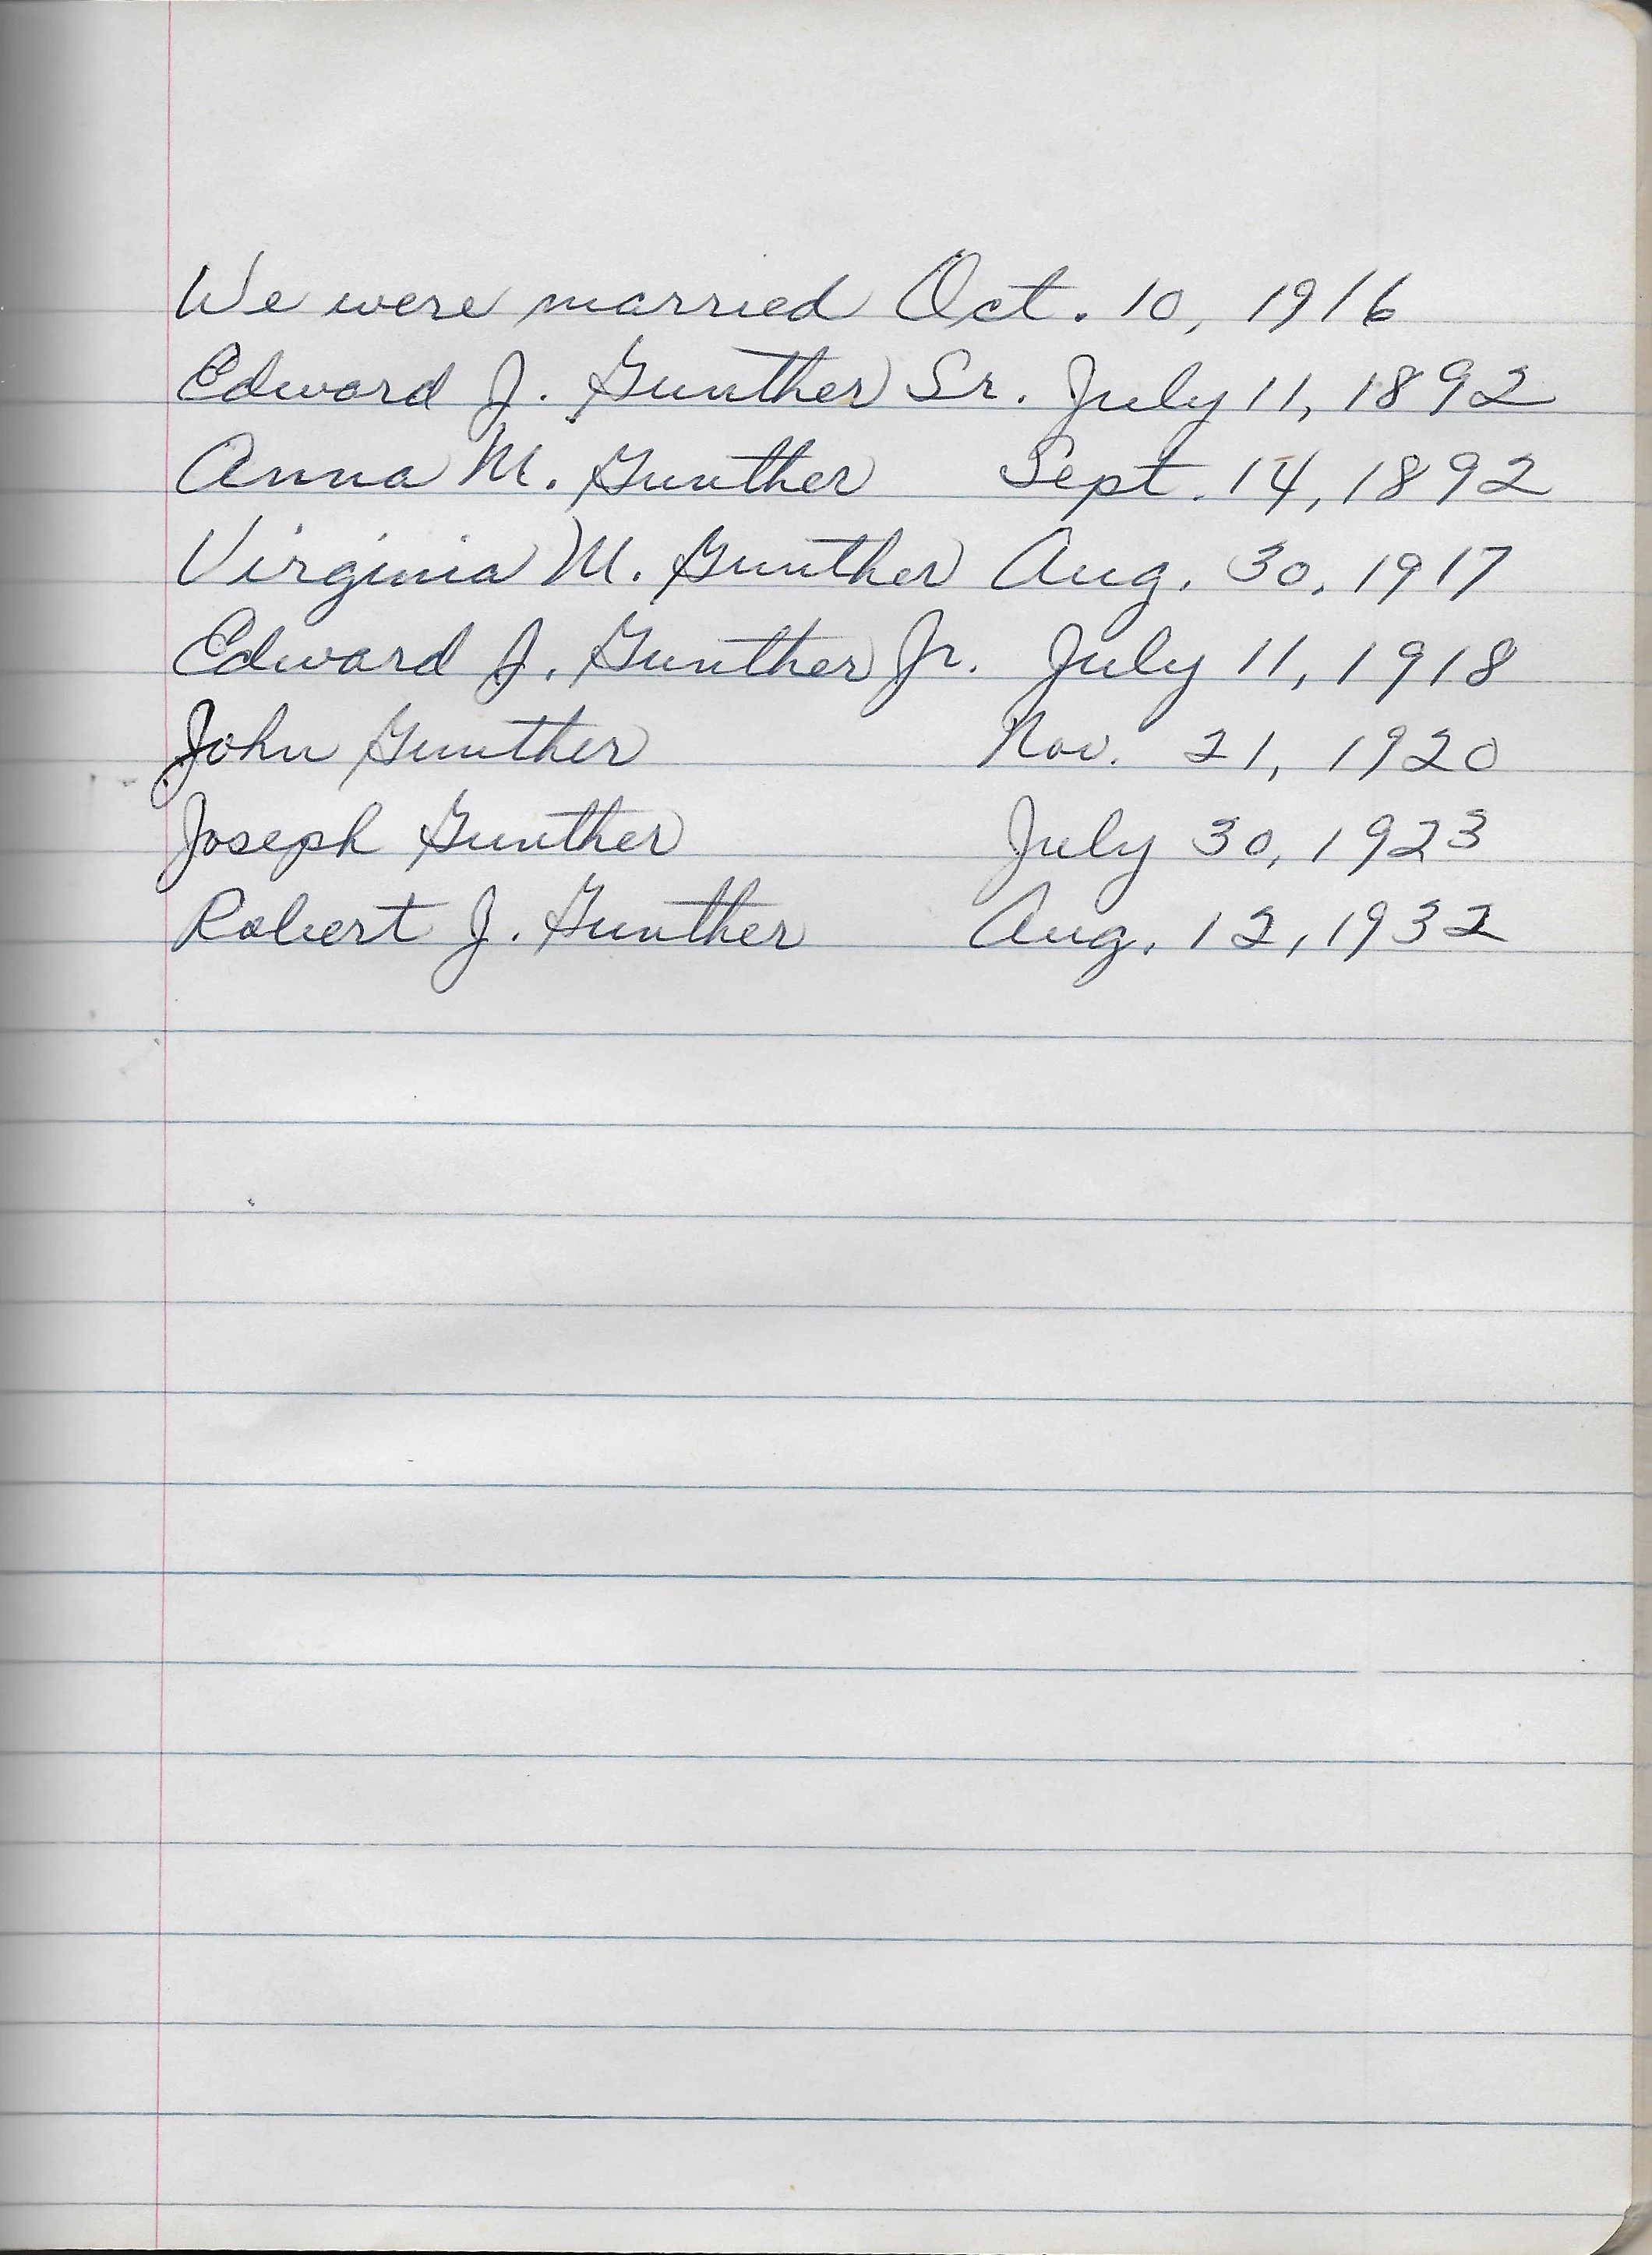 We were married Oct. 10, 1916
Edward J. Gunther Sr. July 11, 1892
Anna M. Gunther Sept. 14, 1892
Virginia M. Gunther Aug. 30, 1917
Edward J. Gunther Jr. July 11, 1918
John Gunther Nov. 21, 1920
Joseph Gunther July 30, 1923
Robert J. Gunther Aug. 12, 1932